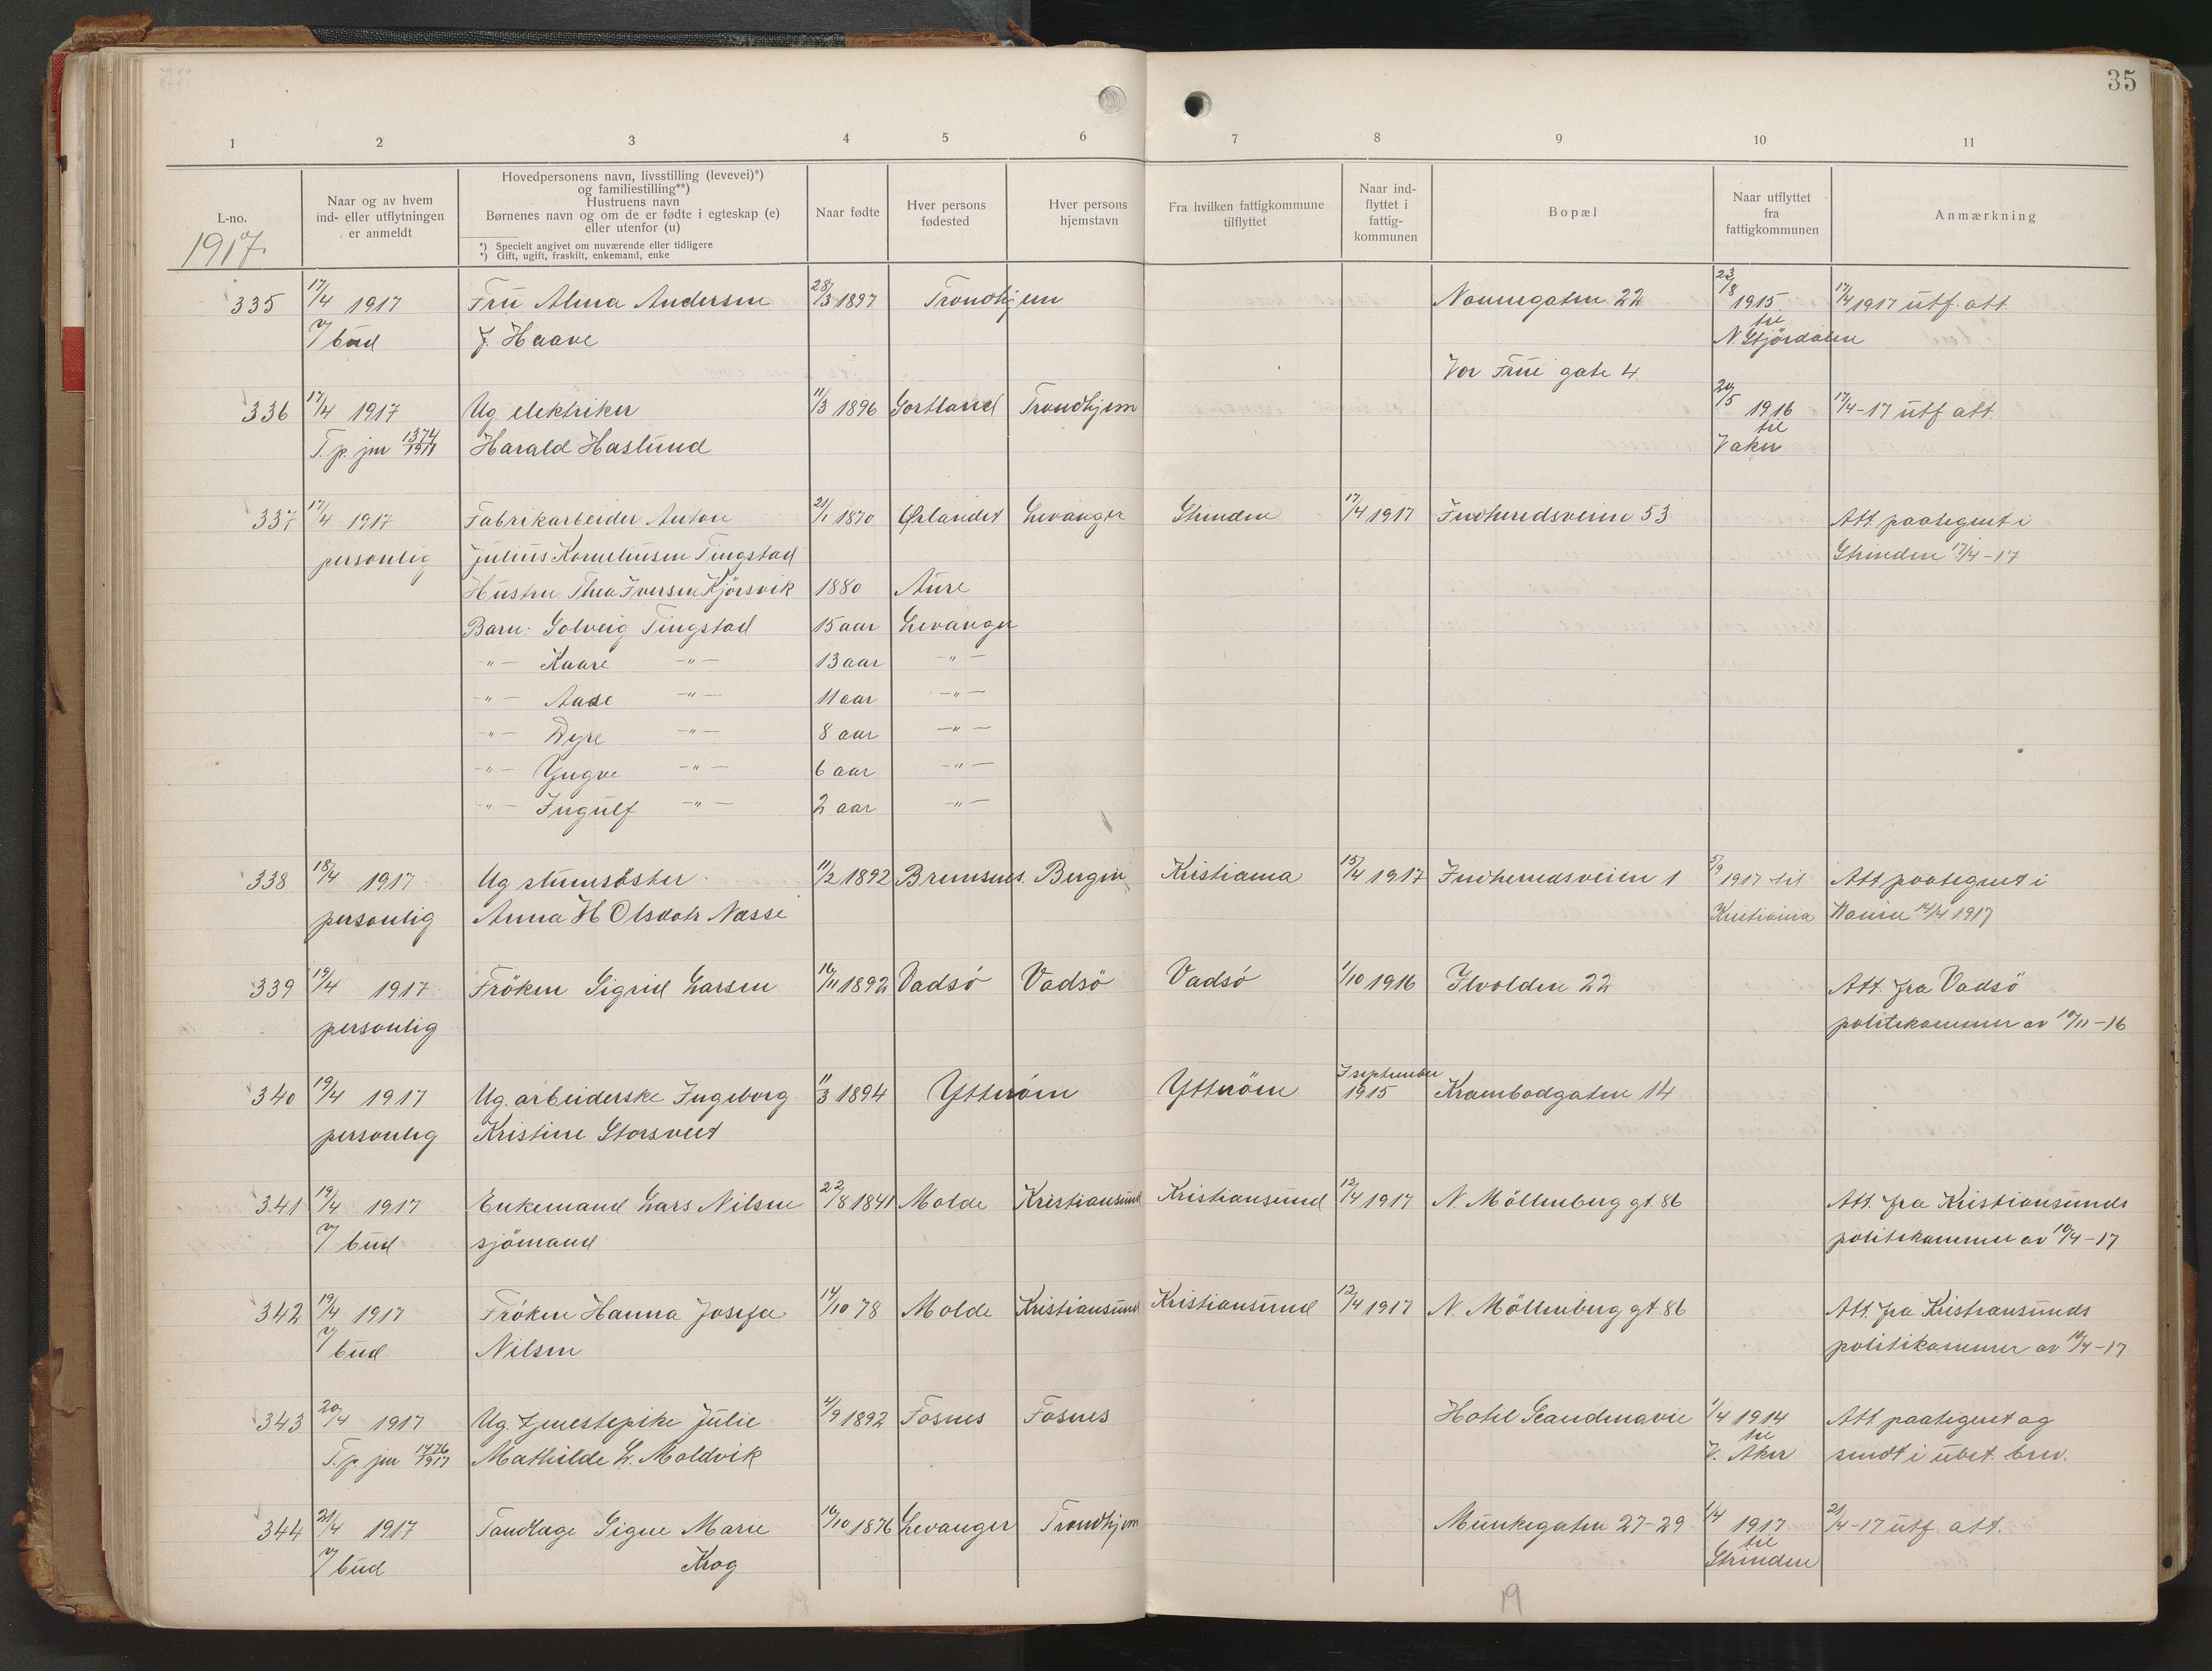 35
1 2 3 4 5 6 7 8 9 10 11
L-no.
Naar og av hvem
ind- eller utflytningen
er anmeldt
Hovedpersonens navn, livsstilling (levevei)*)
og familiestilling**)
Hustruens navn
Børnenes navn og om de er fødte i egteskap (e)
eller utenfor (u)
*) Specielt angivet om nuværende eller tidligere
*) Gift, ugift, fraskilt, enkemand, enke
Naar fødte
Hver persons
fødested
Hver persons
hjemstavn
Fra hvilken fattigkommune
tilflyttet
Naar ind-
flyttet i
fattig-
kommunen
Bopæl
Naar utflyttet
fra
fattigkommunen
Anmærkning
1917.
335 17/4 1917 Fru Alma Andersen 28/3 1897 Trondhjem Nonnegaten 22 23/8 1915 17/4 1917 utf. att.
v/ bud J. Haave til N. Stjördalen
Vor Frue gate 4
336 17/4 1917 Ug elektriker 11/3 1896 Sortland Trondhjem 20/5 1916 17/4-17 utf att.
T. p. jnr 1374/1917 Harald Haslund til V aker
337 17/4 1917 Fabrikarbeider Anton 21/1 1870 Ørlandet Levanger Strinden 17/4 1917 Indherredsveien 53 Att. paategnet i
personlig Julius Korneliusen Tingstad Strinden 17/4-17
Hustru Thea Iversen Kjörsvik 1880 Aure
Barn: Solveig Tingstad 15 aar Levanger
-"- Kaare -"- 13 aar -"-
-"- Aase -"- 11 aar -"-
-"- Dyre -"- 8 aar -"-
-"- Yngve -"- 6 aar -"-
-"- Ingulf -"- 2 aar -"-
338 18/4 1917 Ug 11/2 1892 Bremsnes. Bergen Kristiania 15/4 1917 Indherredsveien 1 5/9 1917 til Att paategnet i
personlig Anna H Olsdatr Nesse Kristiania 14/4 1917
339 19/4 1917 Fröken Sigrid Larsen 16/11 1892 Vadsö Vadsö Vadsö 1/10 1916 Ilvolden 22 Att. fra Vadsö
personlig politikammer av 10/11-16
340 19/4 1917 Ug. arbeiderske Ingeborg 11/3 1894 Ytterön Ytterön I september 1915 Krambodgaten 14
personlig Kristine Storsveet
341 19/4 1917 Enkemand Lars Nilsen 22/8 1841 Molde Kristiansund Kristiansund 12/4 1917 N. Möllenberg gt. 86 Att. fra Kristiansunds
v/ bud sjömand politikammer av 10/4-17
342 19/4 1917 Fröken Hanna Josefa 14/10 78 Molde Kristiansund Kristiansund 12/4 1917 N. Möllenberg gt. 86 Att. fra Kristiansunds
v/ bud Nilsen politikammer av 10/4-17
343 20/4 1917 Ug. tjenestepike Julie 4/9 1892 Fosnes Fosnes Hotel Scandinavie 1/4 1914 Att paategnet og
T. p. jnr 1476/1917 Mathilde L. Moldvik til V. Aker sendt i ubet. brev.
344 21/4 1917 Tandlæge Signe Marie 16/10 1876 Levanger Trondhjem Munkegaten 27-29 1/4 1917 21/4-17 utf. att.
v/ bud Krog til Strinden
19